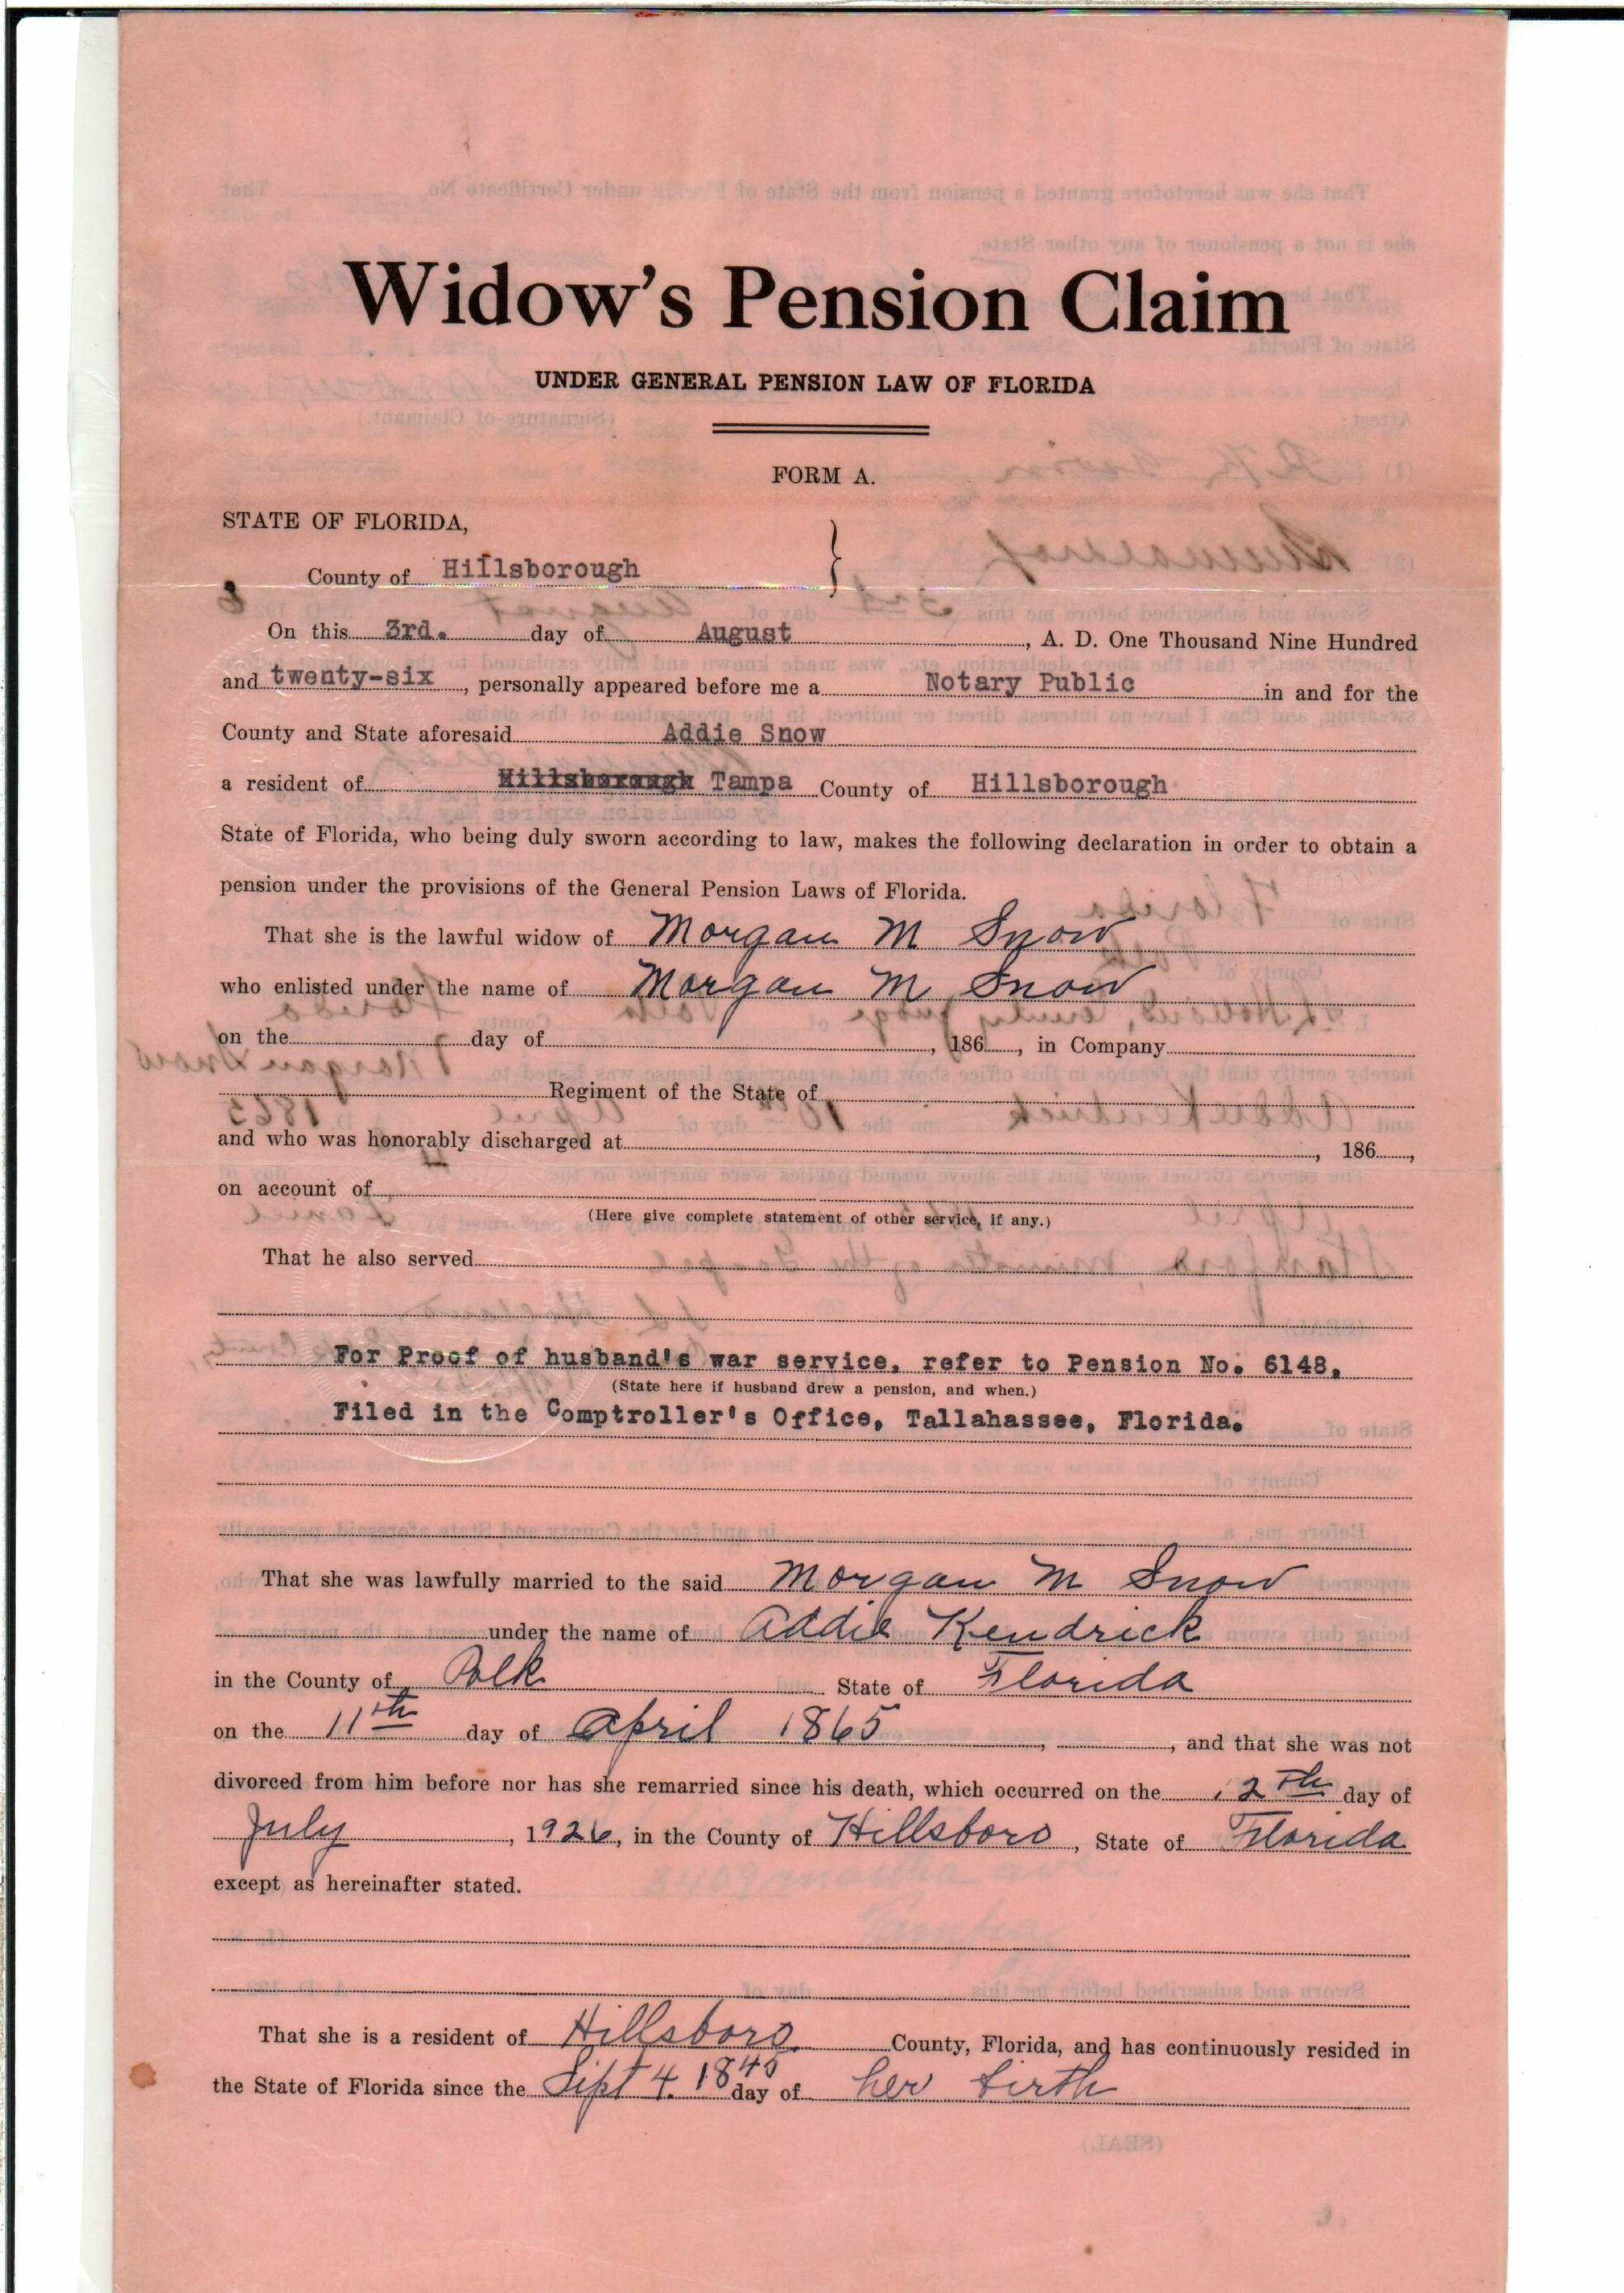 Widow's Pension Claim
UNDER GENERAL PENSION LAW OF FLORIDA
FORM A.
STATE OF FLORIDA,
County of Hillsborough
On this 3rd. day of August, A. D. One Thousand Nine Hundred
and twenty-six, personally appeared before me a Notary Public in and for the
County and State aforesaid Addie Snow
a resident of Hillsborough Tampa County of Hillsborough
State of Florida, who being duly sworn according to law, makes the following declaration in order to obtain a
pension under the provisions of the General Pension Laws of Florida.
That she is the lawful widow of Morgan M Snow
who enlisted under the name of Morgan M Snow
on the day of , 186 , in Company
Regiment of the State of
and who was honorably discharged at , 186 ,
on account of
(Here give complete statement of other service, if any.)
That he also served
For Proof of husband's war service, refer to Pension No. 6148,
(State here if husband drew a pension, and when.)
Filed in the Comptroller's Office, Tallahassee, Florida.
That she was lawfully married to the said Morgan M Snow
under the name of Addie Kendrick
in the County of Polk State of Florida
on the 11th day of April 1865 , , and that she was not
divorced from him before nor has she remarried since his death, which occurred on the 12th day of
July , 1926, in the County of Hillsboro, State of Florida
except as hereinafter stated.
That she is a resident of Hillsboro County, Florida, and has continuously resided in
the State of Florida since the Sept 4. 1845 day of her birth